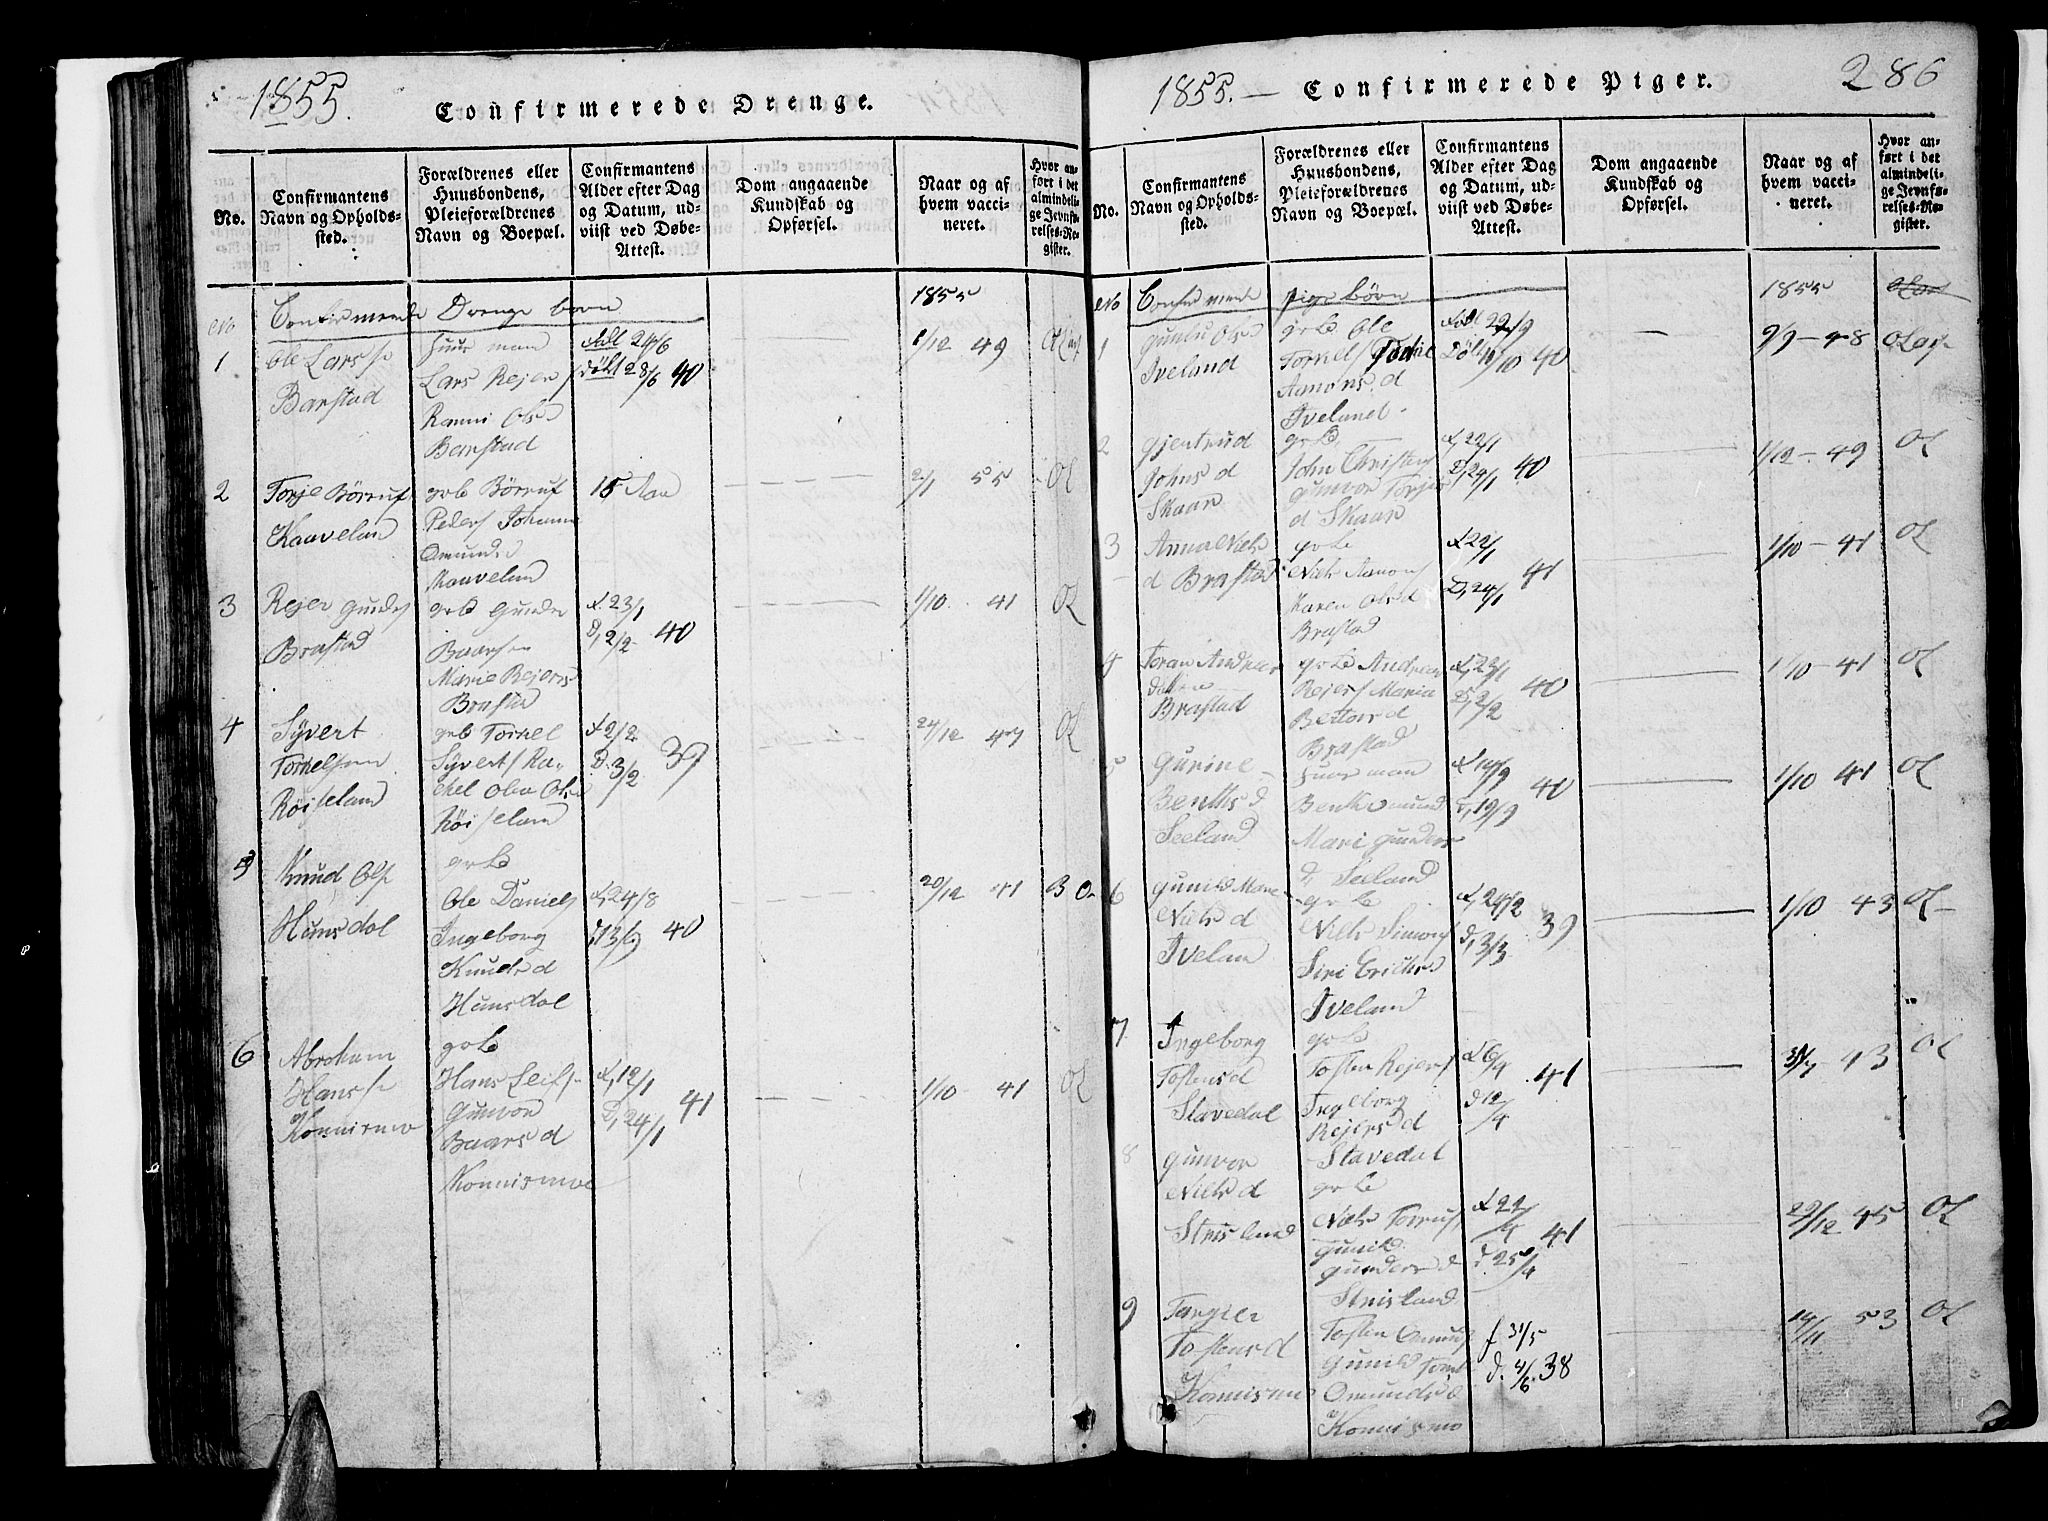 1855.
Confirmerede Drenge.
No.
Confirmantens
Navn og Opholds-
sted.
Forældrenes eller
Huusbondens,
Pleieforældrenes
Navn og Boepæl.
Confirmantens
Alder efter Dag
og Datum, ud-
viist ved Døbe-
Attest.
Dom angaaende
Kundskab og
Opførsel.
Naar og af
hvem vacci-
neret.
Hvor an-
ført i det
almindeli-
ge Jevnfø-
relses-Re-
gister.
No Confirmerede Drenge børn
1855
1
Ole Larss
Barstad
Huusmand
Lars Rejers
Ranni Ols
Barstad
født 24/6
døbt 28/6 40
1/12 49
2
Torje Børruf
Kaaveland
grb Børruf
Peders Johanne
Omunds
Kaaveland
15 Aar
2/1 55
Ol
3
Rejer Gunders
Brastad
grb Gunder
Baarsen
Marie Rejers
Brastad
f. 23/1
d, 2/2 40
1/10 41
Ol
4
Syvert
Tornelsen
Røiseland
grb Tornel
Syverts Ra-
chel Olsd
Røiseland
f 2/2
d. 3/2 37
24/12 47
Ol
5
Knud Ols
Hunsdal
grb
Ole Daniels
Ingeborg
Knudsd
Hunsdal
f, 24/8
d 13/9 40
20/12 41
B
6
Abraham
Hanss
Konnismo
grb
Hans Leifs
Gunvor
Baarsd
Konnismoe
f, 12/1
d, 24/1 41
1/10 41
Ol
1855.
Confirmerede Piger.
286
No.
Confirmantens
Navn og Opholds-
sted.
Forældrenes eller
Huusbondens,
Pleieforældrenes
Navn og Boepæl.
Confirmantens
Alder efter Dag
og Datum, ud-
viist ved Døbe-
Attest.
Dom angaaende
Kundskab og
Opførsel.
Naar og af
hvem vacci-
neret.
Hvor an-
ført i det
almindeli-
ge Jevnfø-
relses-Re-
gister.
No Confirmerede pige børn
1855
1
Iveland
grb Ole
Tornels
Aanonsd
Iveland
født 22/9
Døbt 11/10 40
9/9 - 48
2
Gjertrud
Johnsd
Skaar
grb
John Christens
Gunvor Torjers
d Skaar
f, 22/1
d, 24/1 40
1/12 - 49
Ol
3
Anna Niels
d Brastad
grb
Niels Aanons
Karen Olsd
Brastad
f 22/1
D, 24/1 41
1/10 - 41
Ol
4
Toran Andreas
datter
Brastad
grb Andreas
Rejers Maria
Bertorsd
Brastad
f, 22/1
D, 2/2 40
1/10 - 41
Ol
5
Gurine
Benthsd
Seeland
Huusmand
Marie Gunders
d Seeland
f 14/9
d, 19/9 40
1/10 41
Ol
6
Gunild Marie
Nielsd
Iveland
grb
Niels Simons
Siri Erichsd
Iveland
f, 24/2
d, 3/3 39
1/10 43
Ol
7
Ingeborg
Tostensd
Stavedal
grb
Tosten Rejers
Ingeborg
Rejersd
Stavedal
f 6/4
d 12/4 41
43
Ol
8
Gunvor
Nielsd
Strisland
grb
Niels Torrufs
Gunild
Gundersd
Strisland
f 22/4
d 25/4 41
29/12 45
Ol
9
Targier
Tostensd
Konnismo
Tosten Omunds
Gunild
Omundsd
Konnismo
f 31/5
d. 4/6. 38
14/11 53
Ol